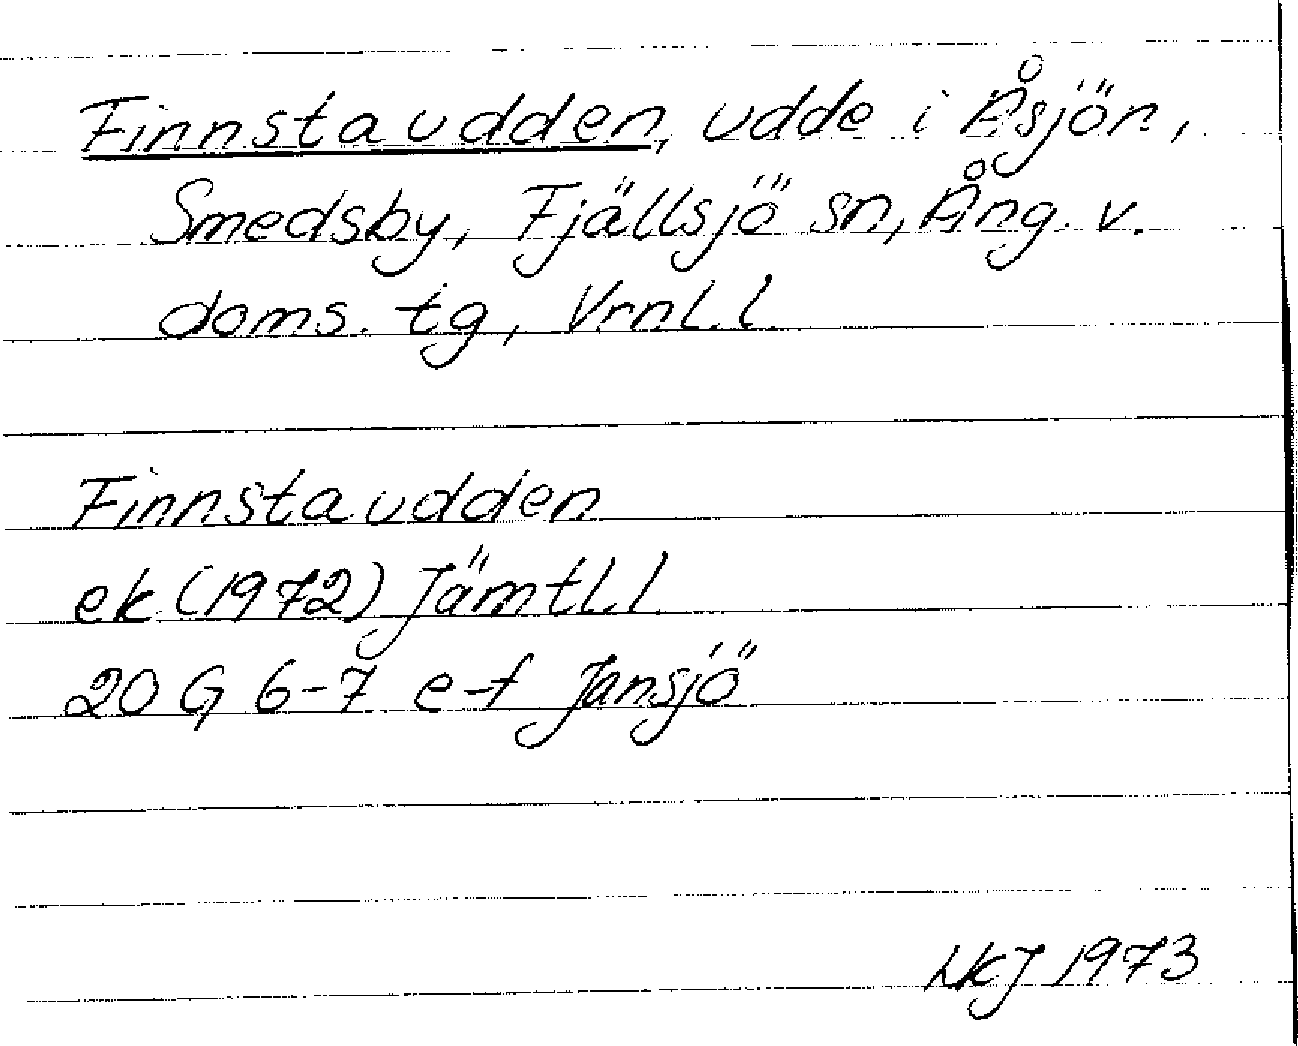 Finnstaudden, udde i Åsjön,
Smedsby, Fjällsjö sn, Ång. v.
doms. tg, Vrnl. l.
Finnstaudden
ek (1972) Jämtl. l.
20 G 6-7 e-f Jansjö
1973